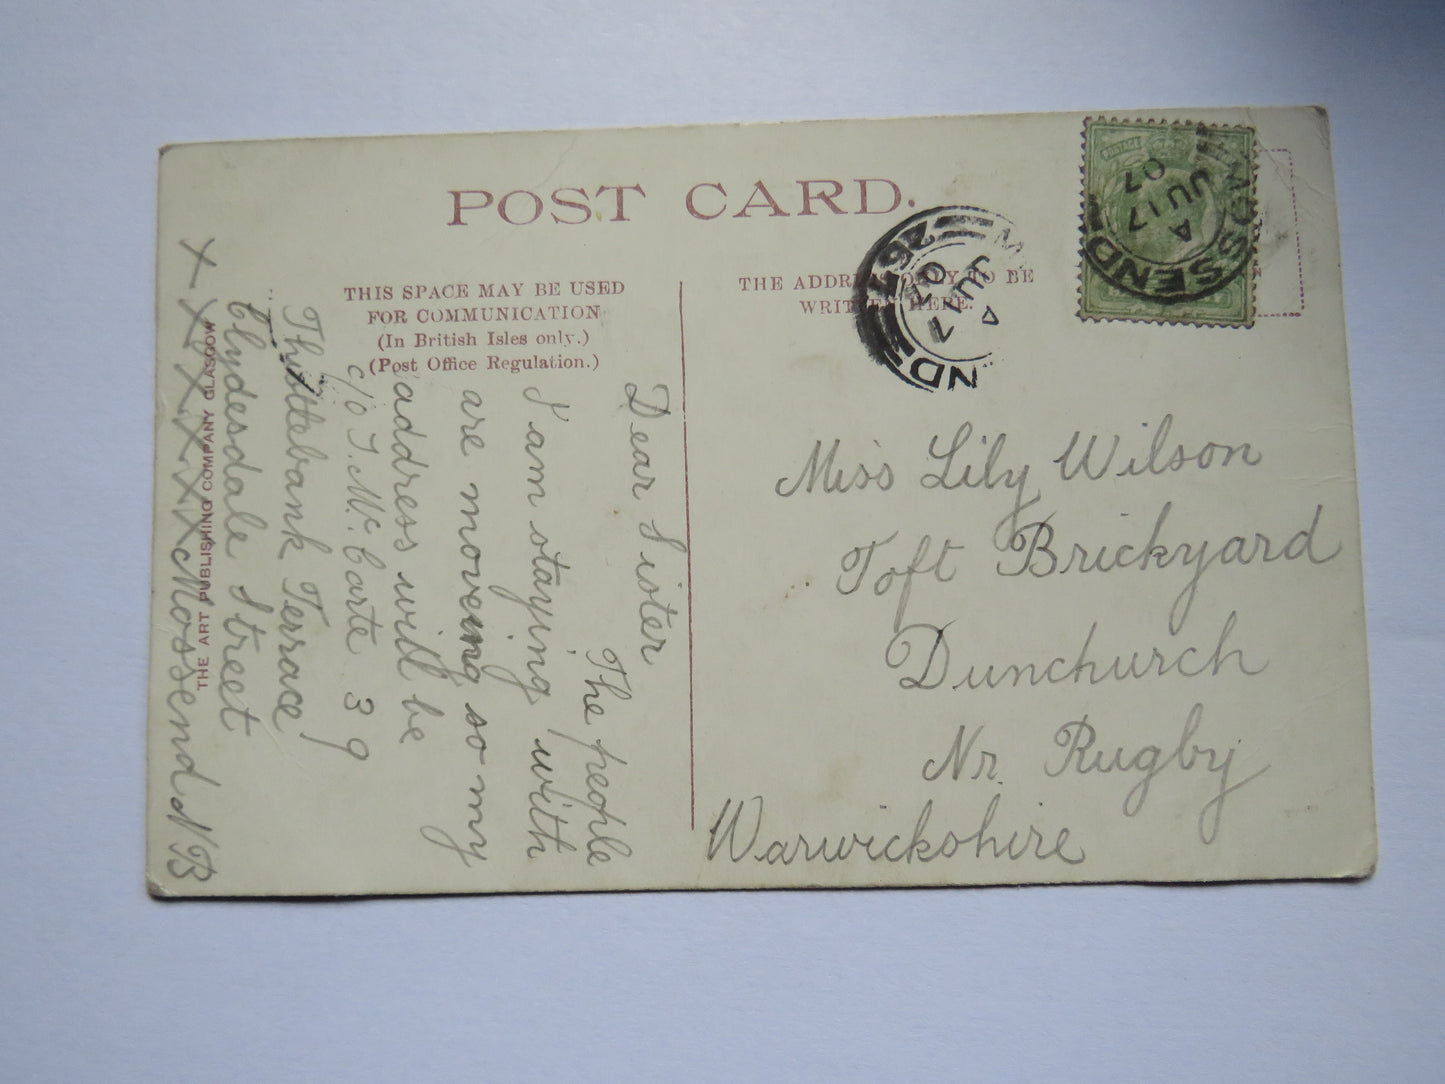 POST CARD.
THIS SPACE MAY BE USED
FOR COMMUNICATION
(In British Isles only.)
(Post Office Regulation.)
THE ADDRESS ONLY TO BE
WRITTEN HERE.
MOSSEND
4
JU 17
07
MOSSEND
4
JU 17
07
Miss Lily Wilson
Toft Brickyard
Dunchurch
Nr. Rugby
Warwickshire
Dear Sister
The people
I am staying with
are moving so my
address will be
c/o J. Mc. Carte 39
Thistlebank Terrace
Clydesdale Street
x x x x x x Mossend N B
THE ART PUBLISHING COMPANY GLASGOW